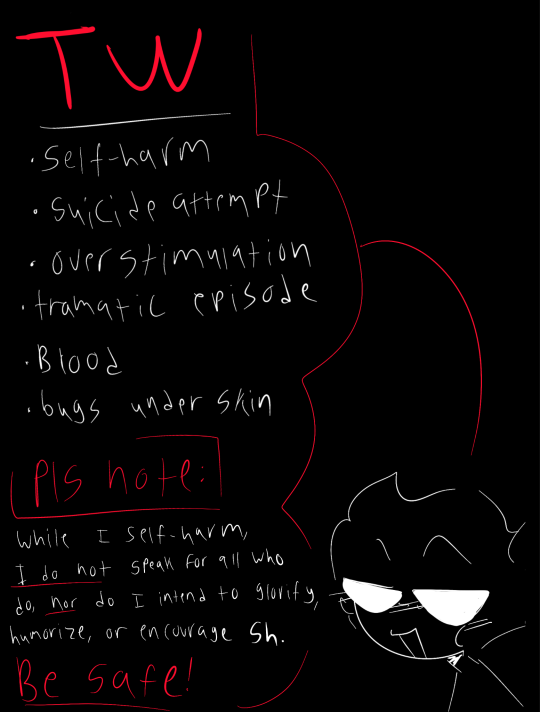 TW
• Self-harm
• Suicide attempt
• overstimulation
• tramatic episode
• Blood
• bugs under skin
Pls note:
While I self-harm,
I do not speak for all who
do, nor do I intend to glorify,
humorize, or encourage Sh.
Be safe!